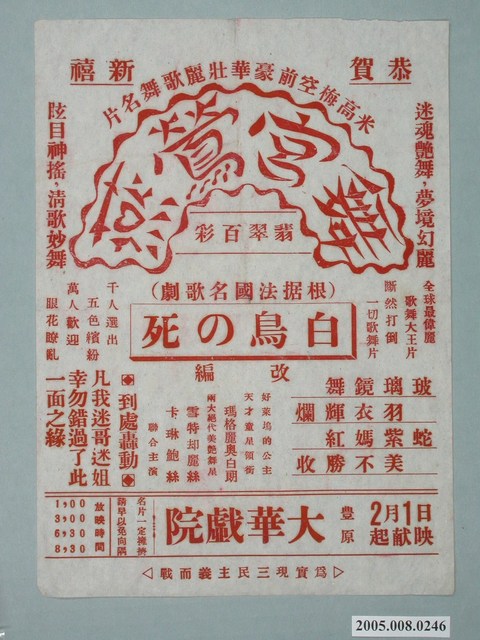 恭賀
新禧
米高梅空前豪華壯麗歌舞名片
迷魂艷舞，夢境幻麗
舞宮鶯燕
眩目神搖，清歌妙舞
翡翠百彩
全球最偉麗
歌舞大王片
斷然打倒
一切歌舞片
（根据法國名歌劇）
白鳥の死
改編
千人選出
五色繽紛
萬人歡迎
眼花瞭亂
玻璃鏡舞
羽衣輝爛
蛇紫嫣紅
美不勝收
好萊塢的公主
天才童星領銜
瑪格麗奧白朗
兩大絕代美艷舞星
雪特却麗絲
卡琳鮑絲
聯合主演
◆到處轟動◆
凡我迷哥迷姐
幸勿錯過了此
一面之緣
2月1日
起献映
豐原
大華戲院
名片一定擁擠
請早以免向隅
放映時間
1,00
3,00
6,30
8,30
◁為實現三民主義而戰▷
2005.008.0246